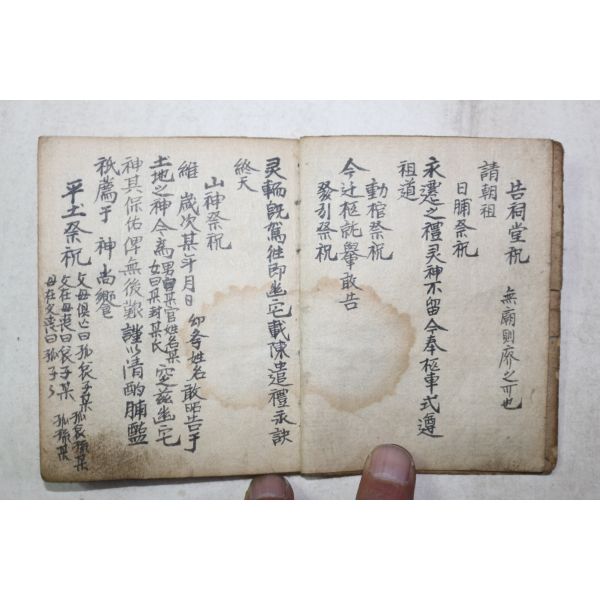 告祠堂祝 無廟則齊之可也
請朝祖
日晡祭祝
永遷之禮灵神不留今奉柩車式遵
祖道
動棺祭祝
今迁柩就轝敢告
發引祭祝
灵輀旣駕徃即幽宅載陳遣禮永訣
終天
山神祭祝
維 歲次某年月日 幼學姓名敢昭告于
土地之神今爲某官姓名某 窆玆幽宅
女曰某封某氏
神其保佑俾無後艱謹以清酌脯醢
祗薦于 神尚饗
平土祭祝
父母俱亡曰孤哀子某 孤哀孫某
父在母喪曰哀子某 孤孫某
母在父喪曰孤子々